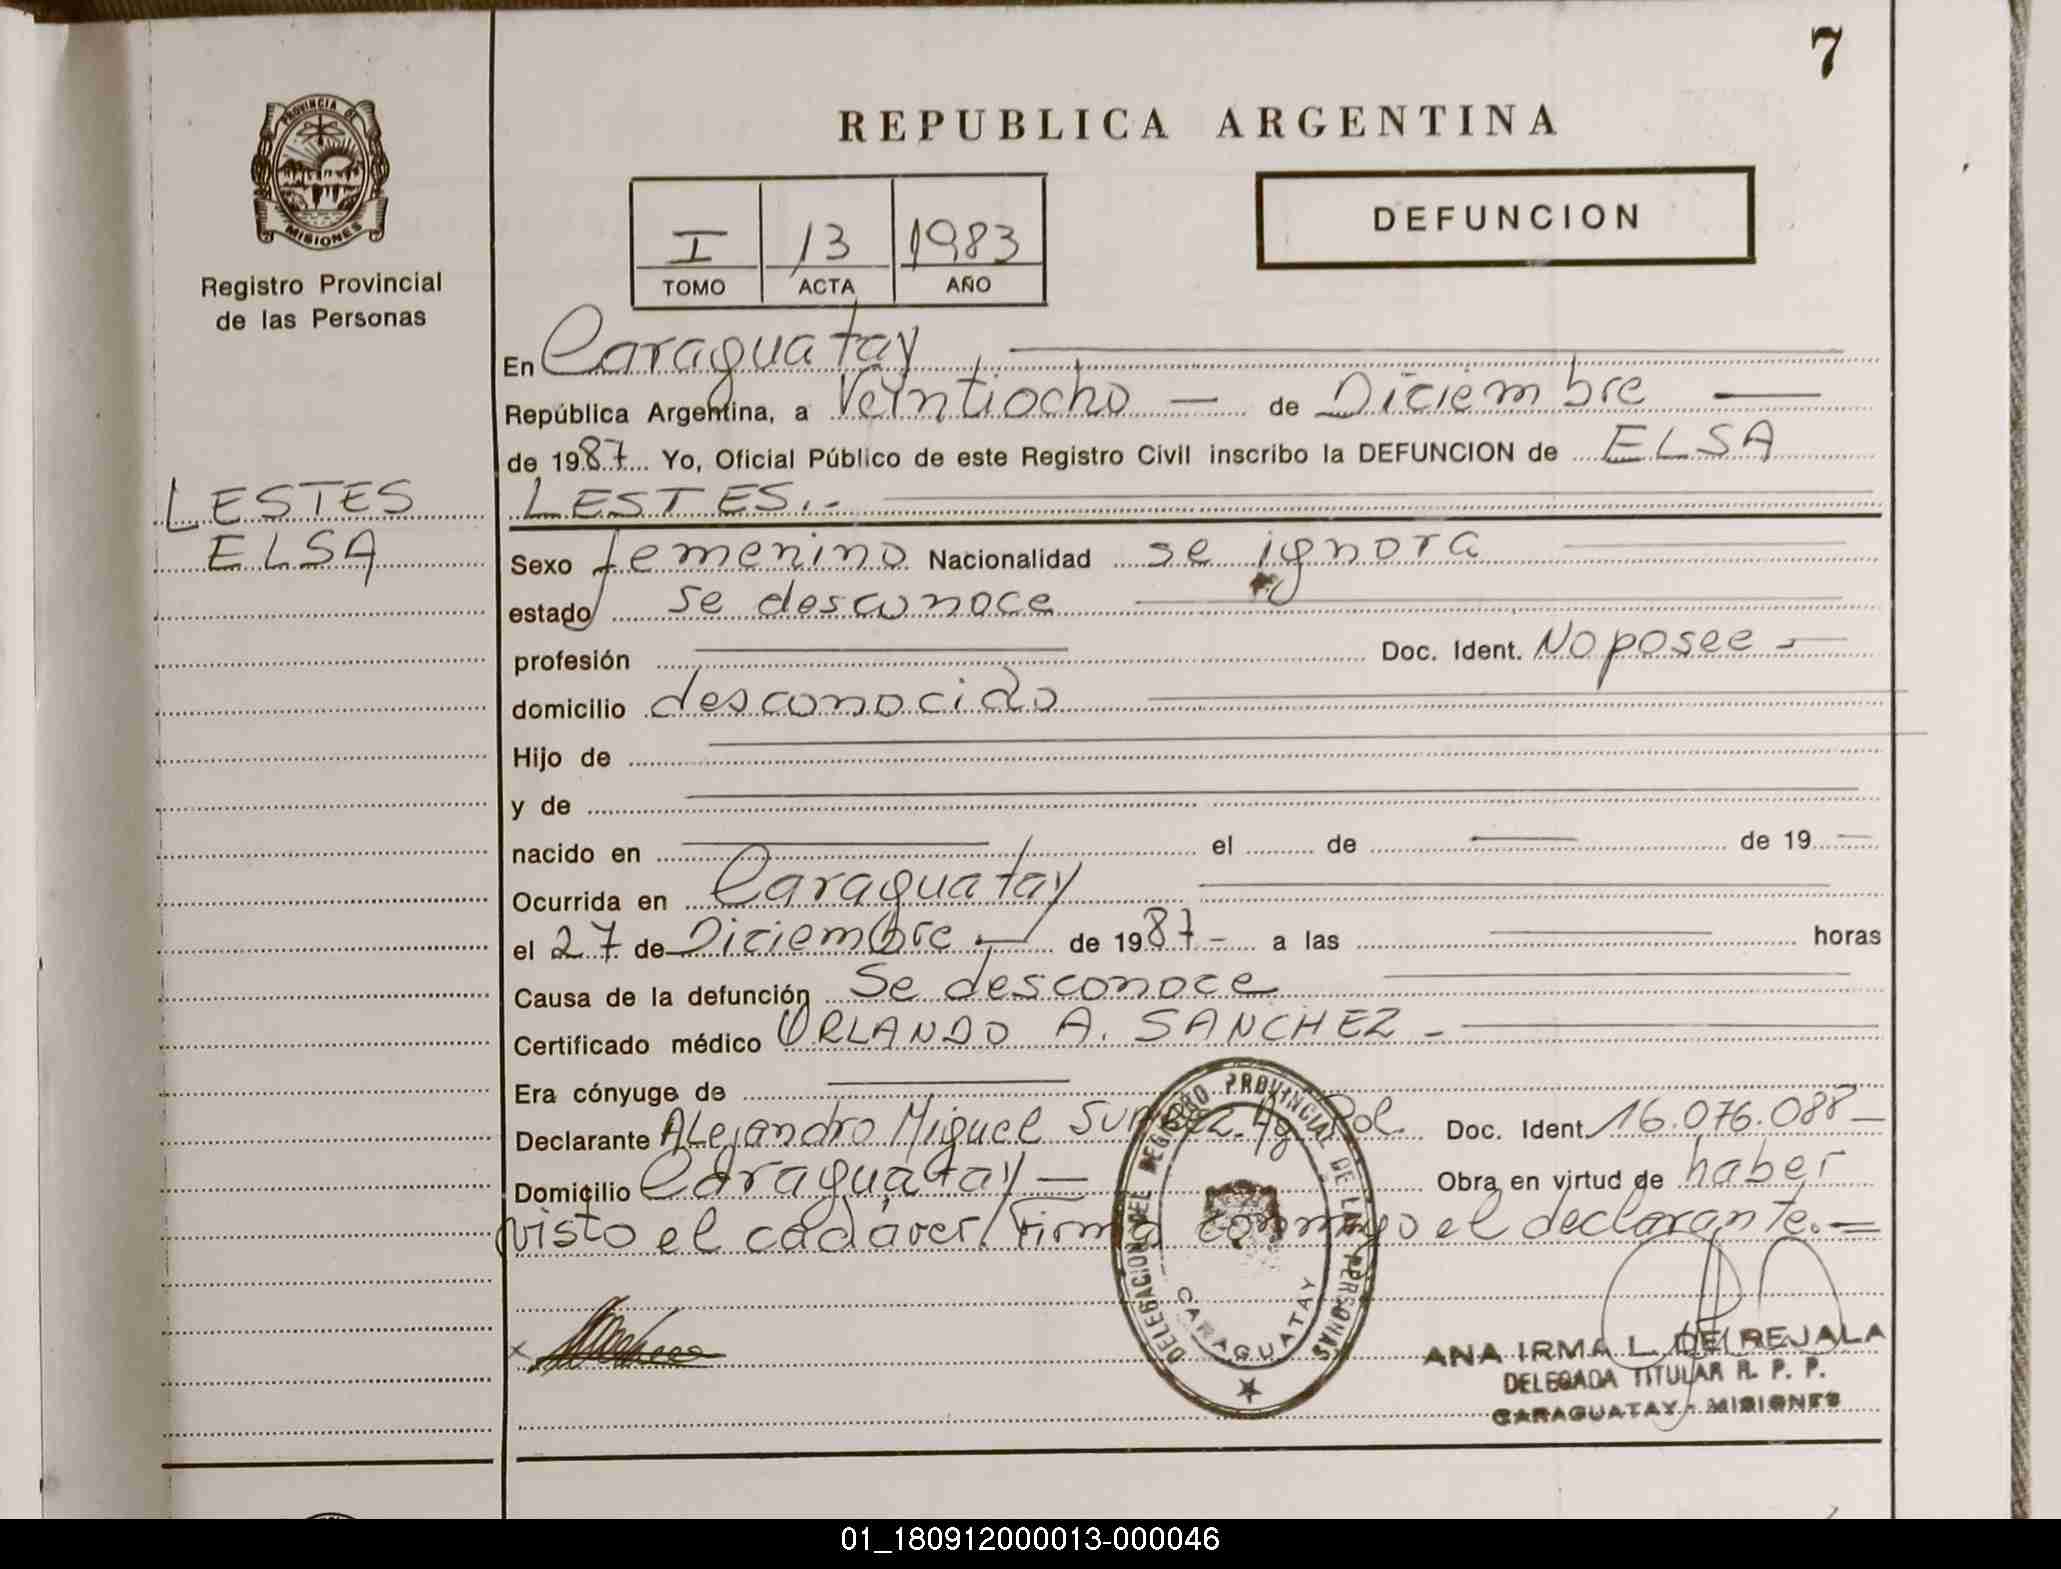 7
PROVINCIA DE
MISIONES
Registro Provincial
de las Personas
REPUBLICA ARGENTINA
DEFUNCION
I 13 1983
TOMO ACTA AÑO
En Caraguatay
República Argentina, a Veintiocho — de Diciembre —
de 1987 Yo, Oficial Público de este Registro Civil inscribo la DEFUNCION de ELSA
LESTES.-
LESTES
ELSA
Sexo femenino Nacionalidad se ignora
estado se desconoce
profesión Doc. Ident. No posee -
domicilio desconocido
Hijo de
y de
nacido en el de de 19
Ocurrida en Caraguatay
el 27 de Diciembre - de 1987 - a las horas
Causa de la defunción Se desconoce
Certificado médico ORLANDO A. SANCHEZ -
Era cónyuge de
Declarante Alejandro Miguel Pol. Doc. Ident. 16.076.088 -
Domicilio Caraguatay — Obra en virtud de haber
visto el cadáver/Firma conmigo el declarante.=
DELEGACION DEL REGISTRO PROVINCIAL DE LAS PERSONAS
CARAGUATAY
ANA IRMA L. DE REJALA
DELEGADA TITULAR R. P. P.
CARAGUATAY - MISIONES
01_180912000013-000046